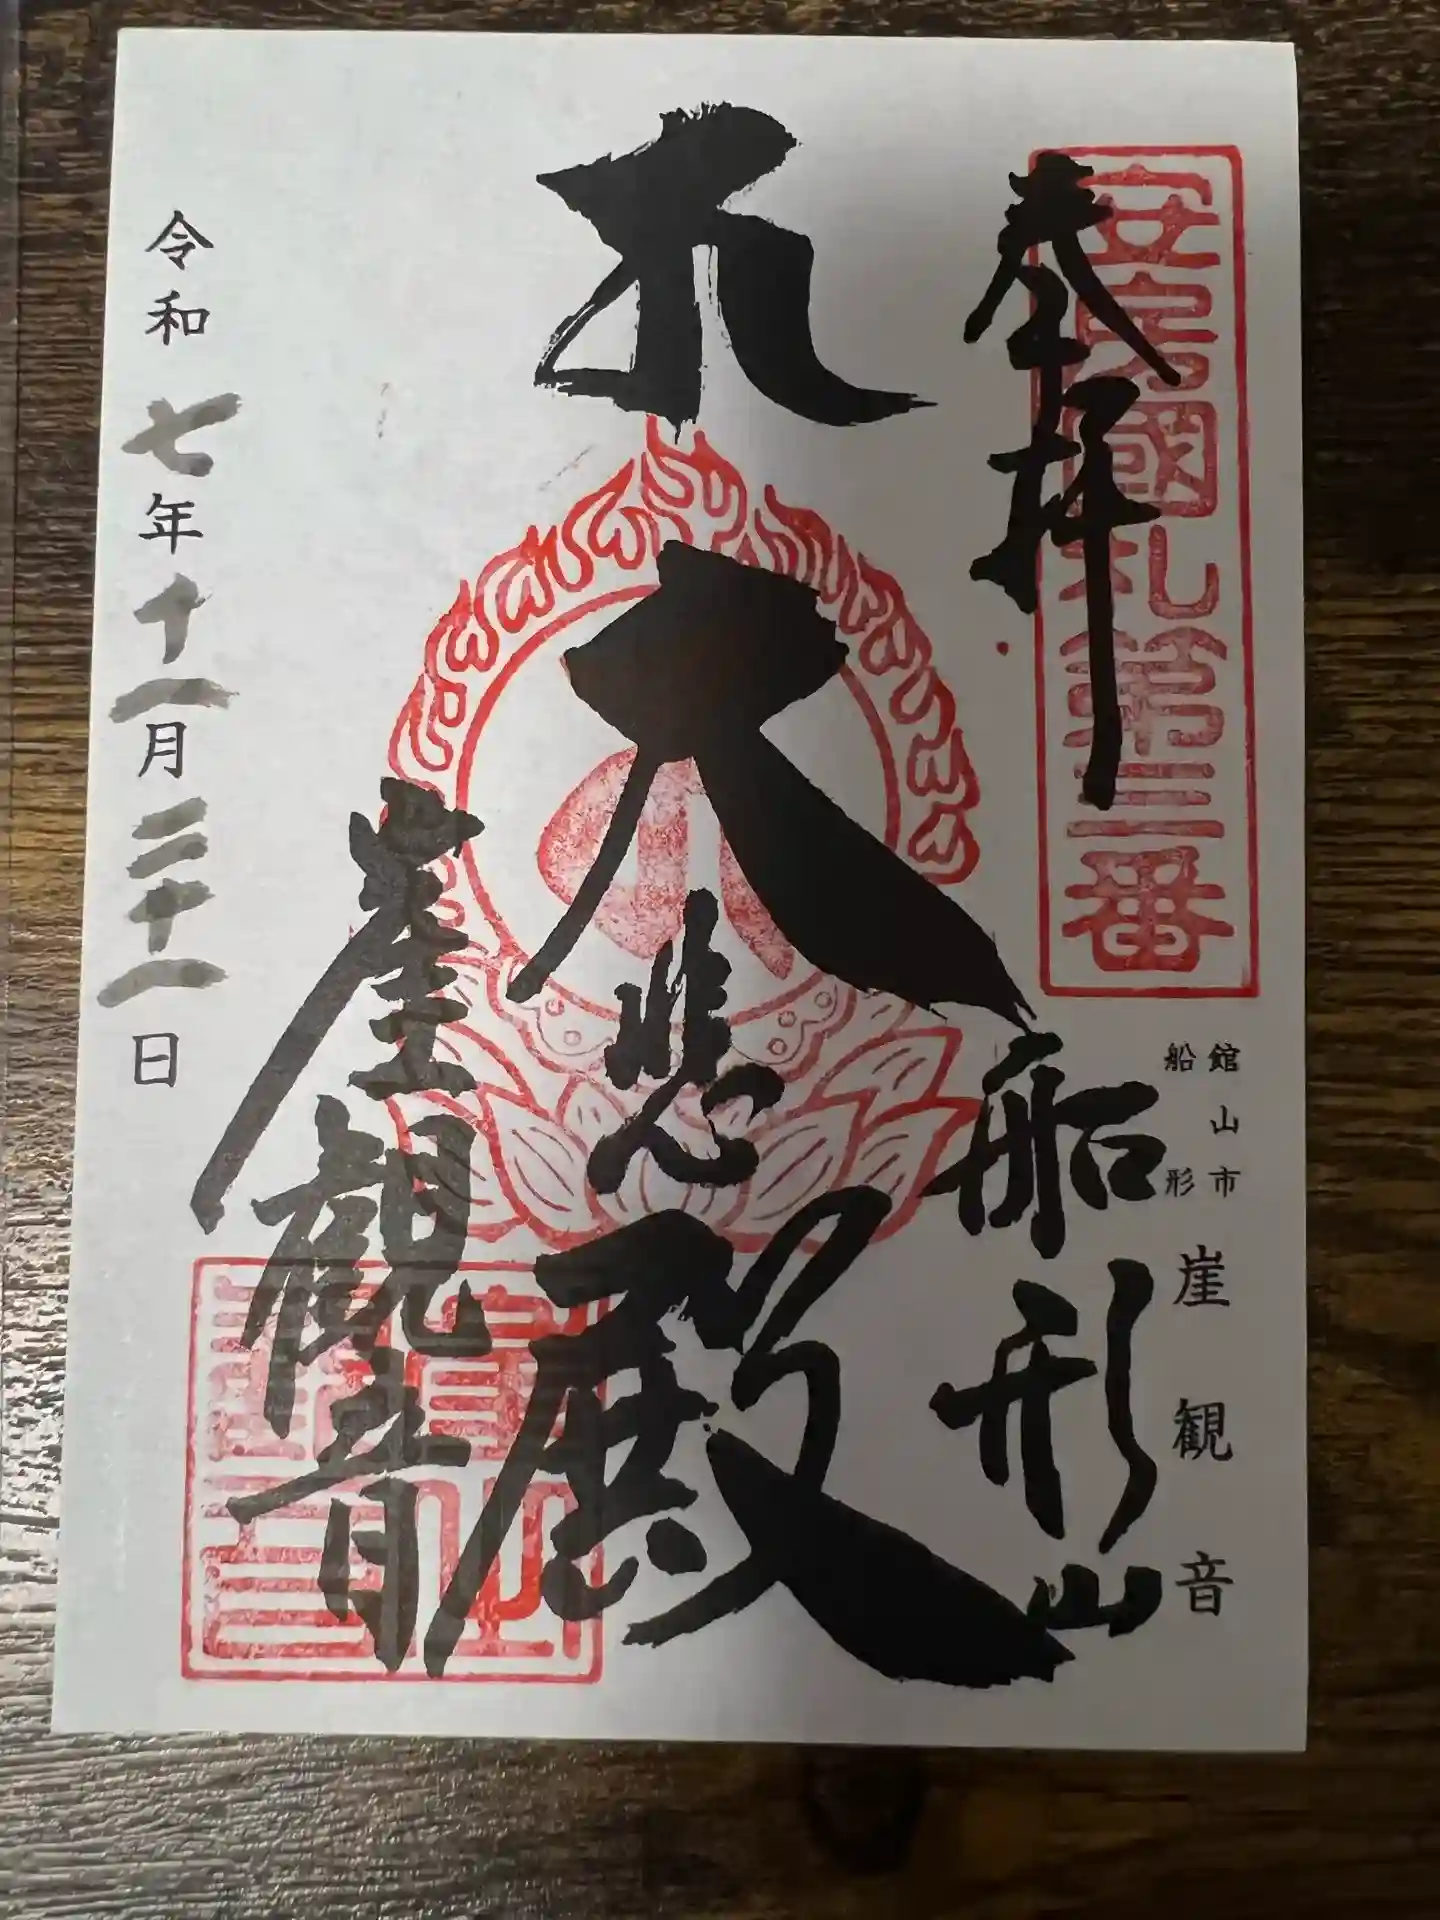 奉拝
安房國札第三番
館山市
船形
崖観音
船形山
大悲殿
崖観音
令和七年十一月二十一日